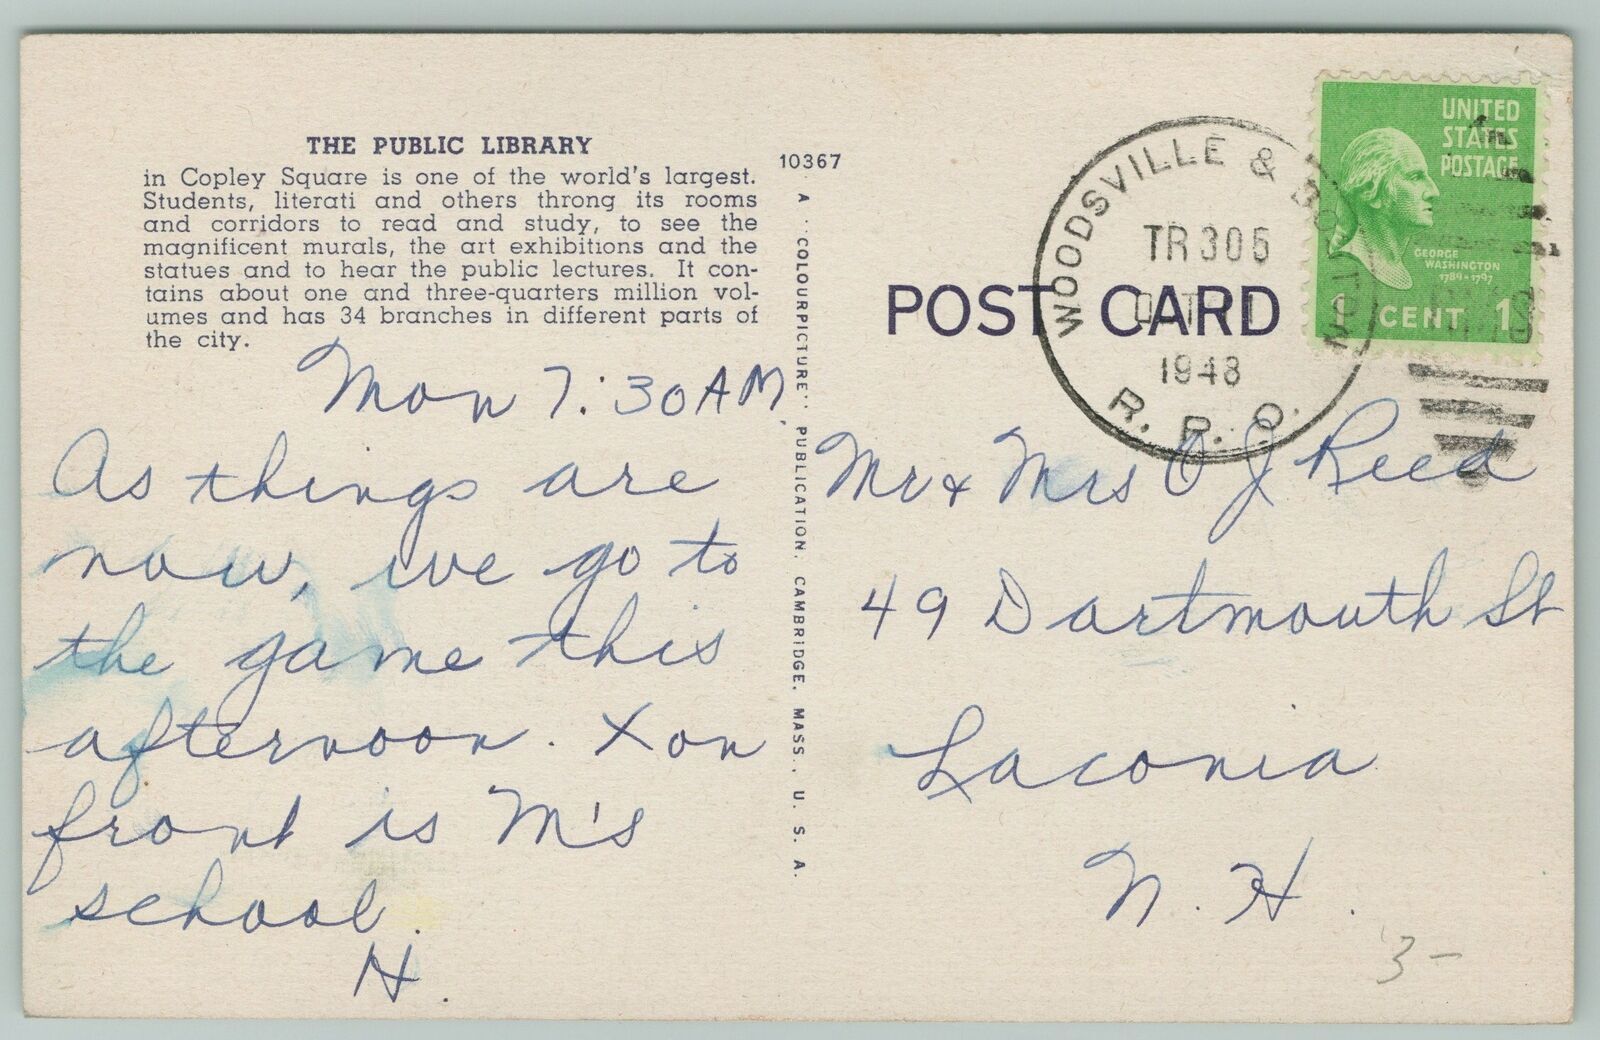 THE PUBLIC LIBRARY
in Copley Square is one of the world's largest.
Students, literati and others throng its rooms
and corridors to read and study, to see the
magnificent murals, the art exhibitions and the
statues and to hear the public lectures. It con-
tains about one and three-quarters million vol-
umes and has 34 branches in different parts of
the city.
Mon 7:30 AM,
As things are
now, we go to
the game this
afternoon. X on
front is M's
school.
H.
10367
A "COLOURPICTURE" PUBLICATION, CAMBRIDGE, MASS., U. S. A.
POST CARD
WOODSVILLE & BOSTON
TR 305
1948
R. P. O.
UNITED
STATES
POSTAGE
GEORGE
WASHINGTON
1789-1797
1 CENT 1
Mr & Mrs O J Reed
49 Dartmouth St
Laconia
N. H.
3-